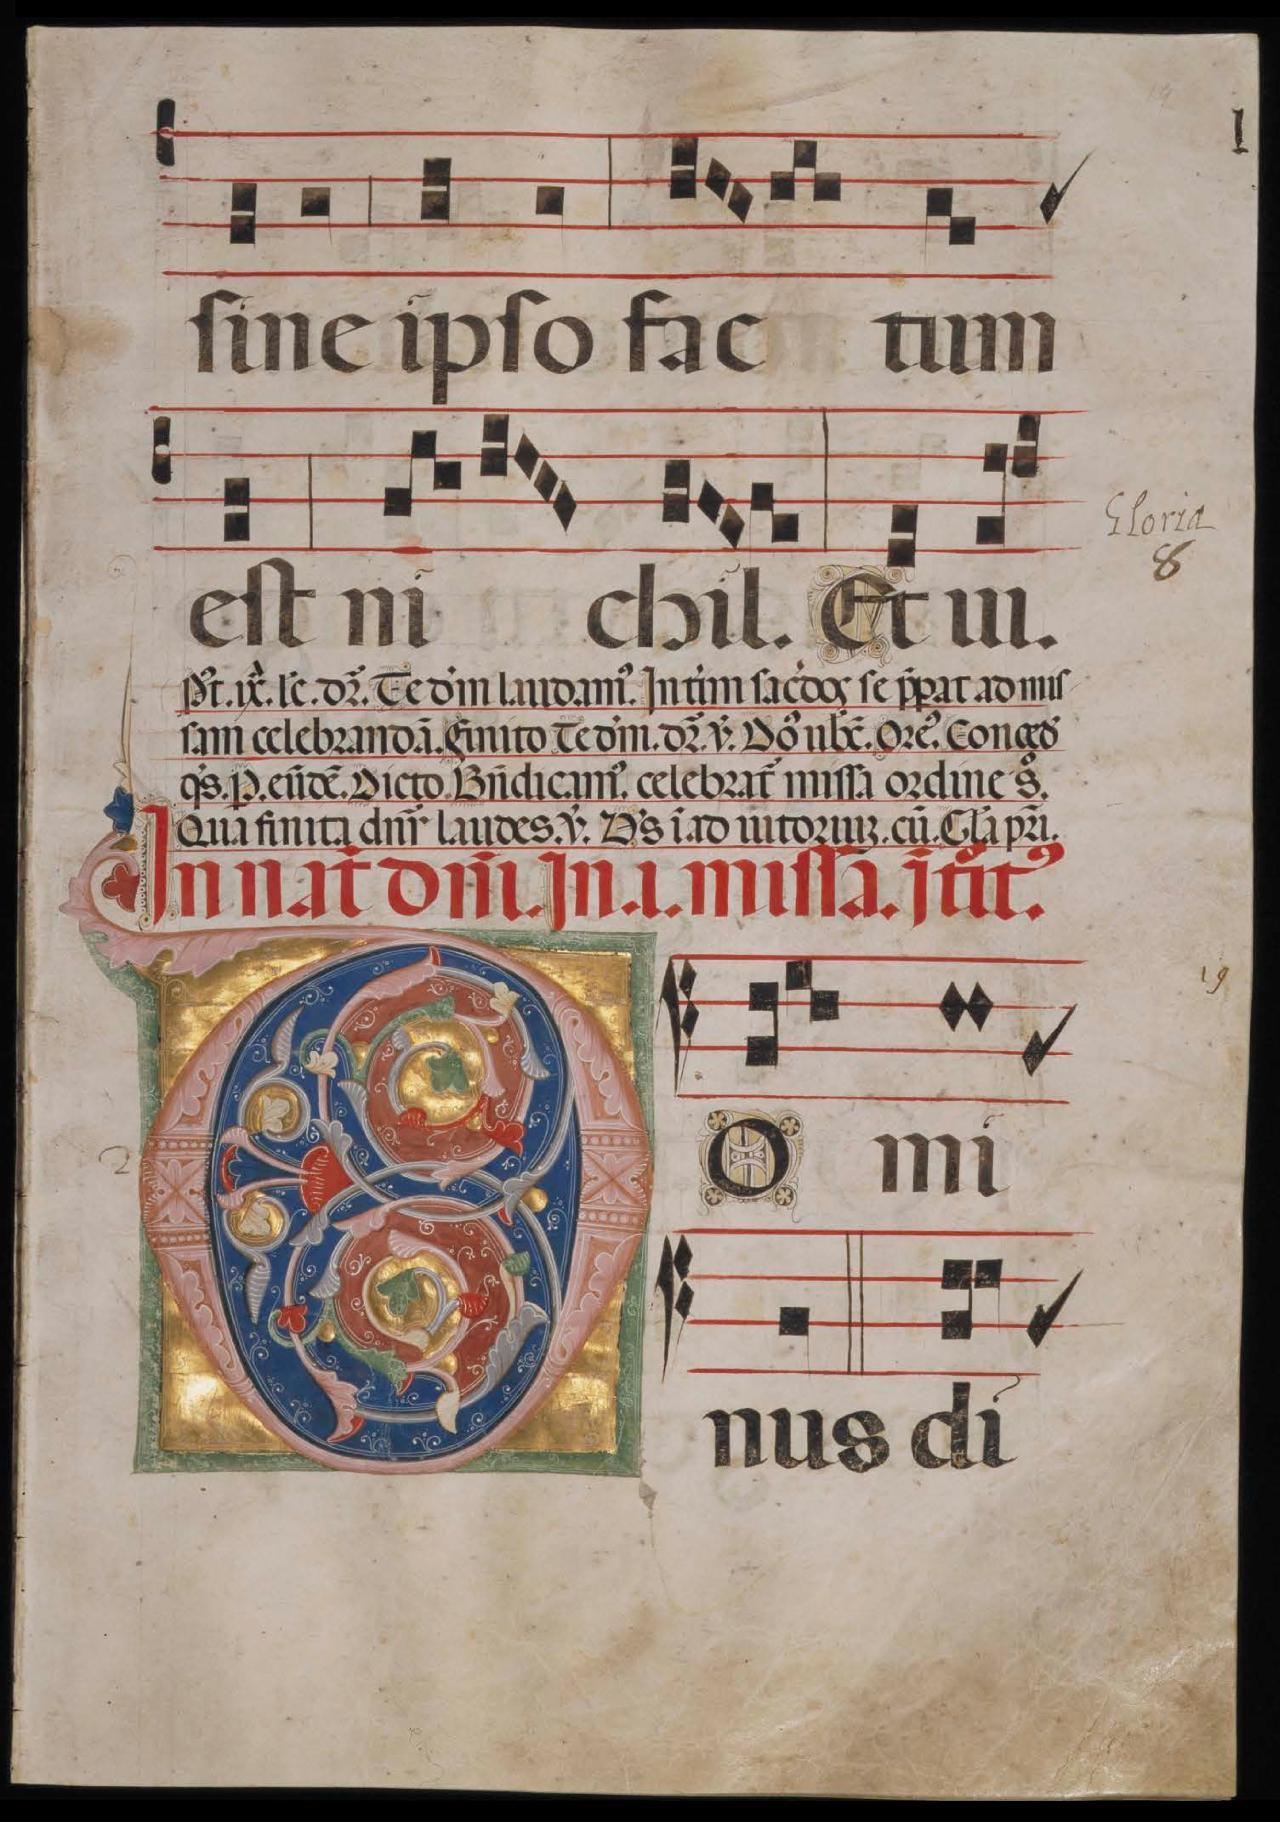 I
sine ip̄so fac tum
est ni chil. Et ui.
Gloria
8
Pꝰt. ix. lc̄. dr̄. Te dm̄ laudamꝰ. Int̄im sac̓dos se p̄parat ad mis
sam celebrandā. Finito Te dm̄. dr̄. v̓. Ore. Conced
qs̄. P. eūdē. Dicto. Bn̄dicamꝰ. celebrat̄ missa ordine s̓.
Qua finita dn̄r laudes. v̓. D̓s ī adiutorium. cū. Gl̄a pr̄i.
In nat̄ dn̄i. In .i. missa. Īt̓it̓.
19
D O mi
2
nus di